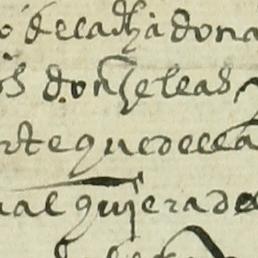 de la dha dona
donzellas
rte que de ella
ual quiera de